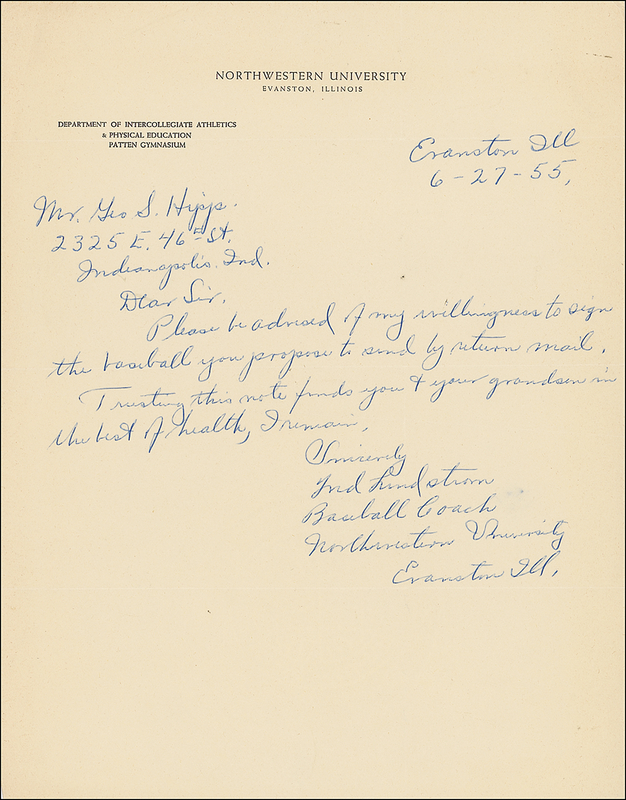 NORTHWESTERN UNIVERSITY
EVANSTON, ILLINOIS
DEPARTMENT OF INTERCOLLEGIATE ATHLETICS
& PHYSICAL EDUCATION
PATTEN GYMNASIUM
Evanston Ill
6-27-55,
Mr. Geo S. Hipp.
2325 E. 46th St.
Indianapolis. Ind.
Dear Sir.
Please be advised of my willingness to sign
the baseball you propose to send by return mail.
Trusting this note finds you & your grandson in
the best of health, I remain,
Sincerely
Fred Lindstrom
Baseball Coach
Northwestern University
Evanston Ill.